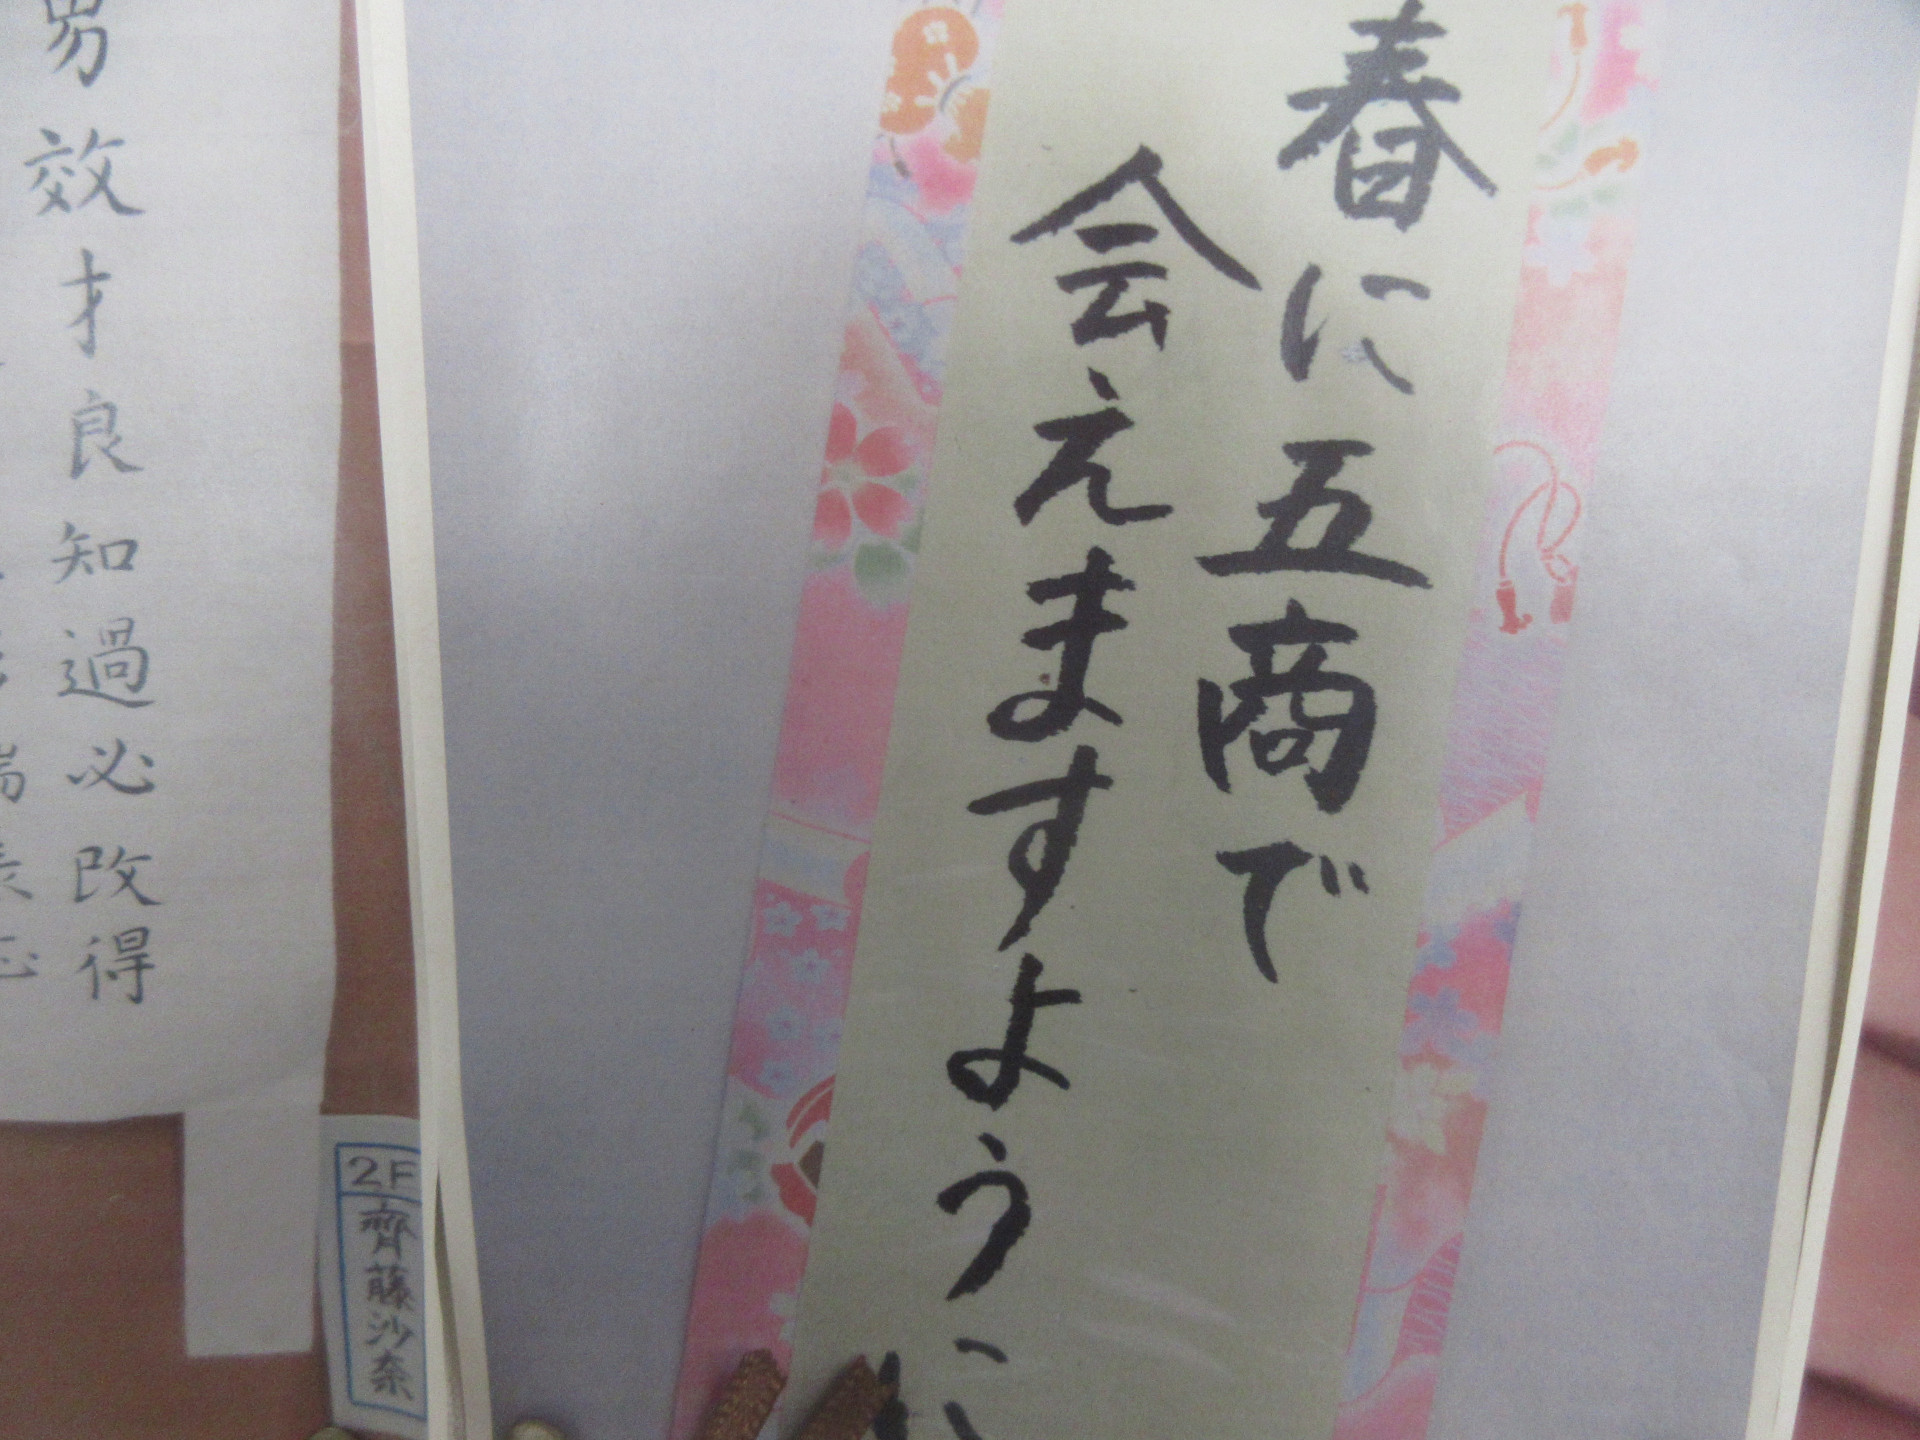 春に五商で
会えますように
男效才良知過必改得
2F
齊藤沙奈